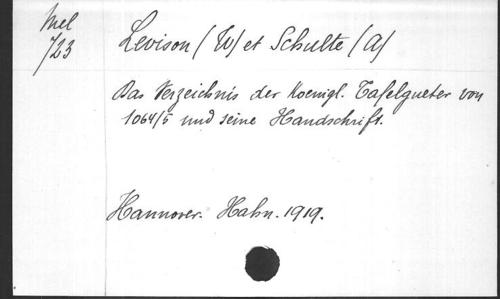 Mel
723
Levison (W) et Schulte (A)
Das Verzeichnis der Koenigl. Tafelgueter von
1064/5 und seine Handschrift.
Hannover. Hahn. 1919.